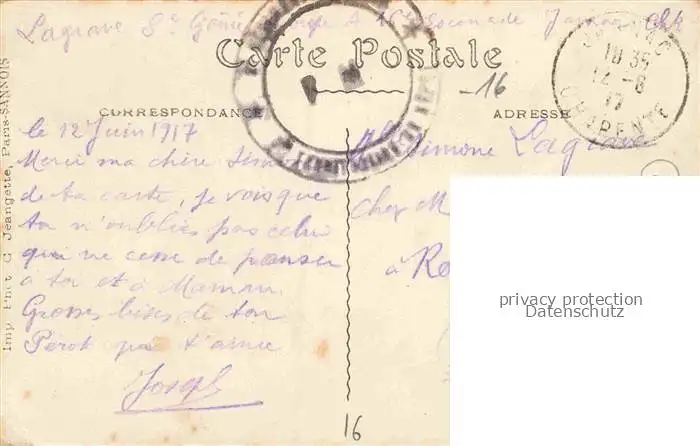 Lagrave 8e Génie
Carte Postale
-16
CORRESPONDANCE
ADRESSE
10 35
12 - 6
17
CHARENTE
le 12 Juin 1917
Merci ma chère Simone
de ta carte, je vois que
tu n'oublies pas celui
qui ne cesse de penser
à toi et à Maman
Grosses bises de ton
qui t'aime
Joseph
Simone Lagrave
Chez M
à Ro
Imp. Phot. C. Jeangette, Paris-SANNOIS
privacy protection
Datenschutz
16